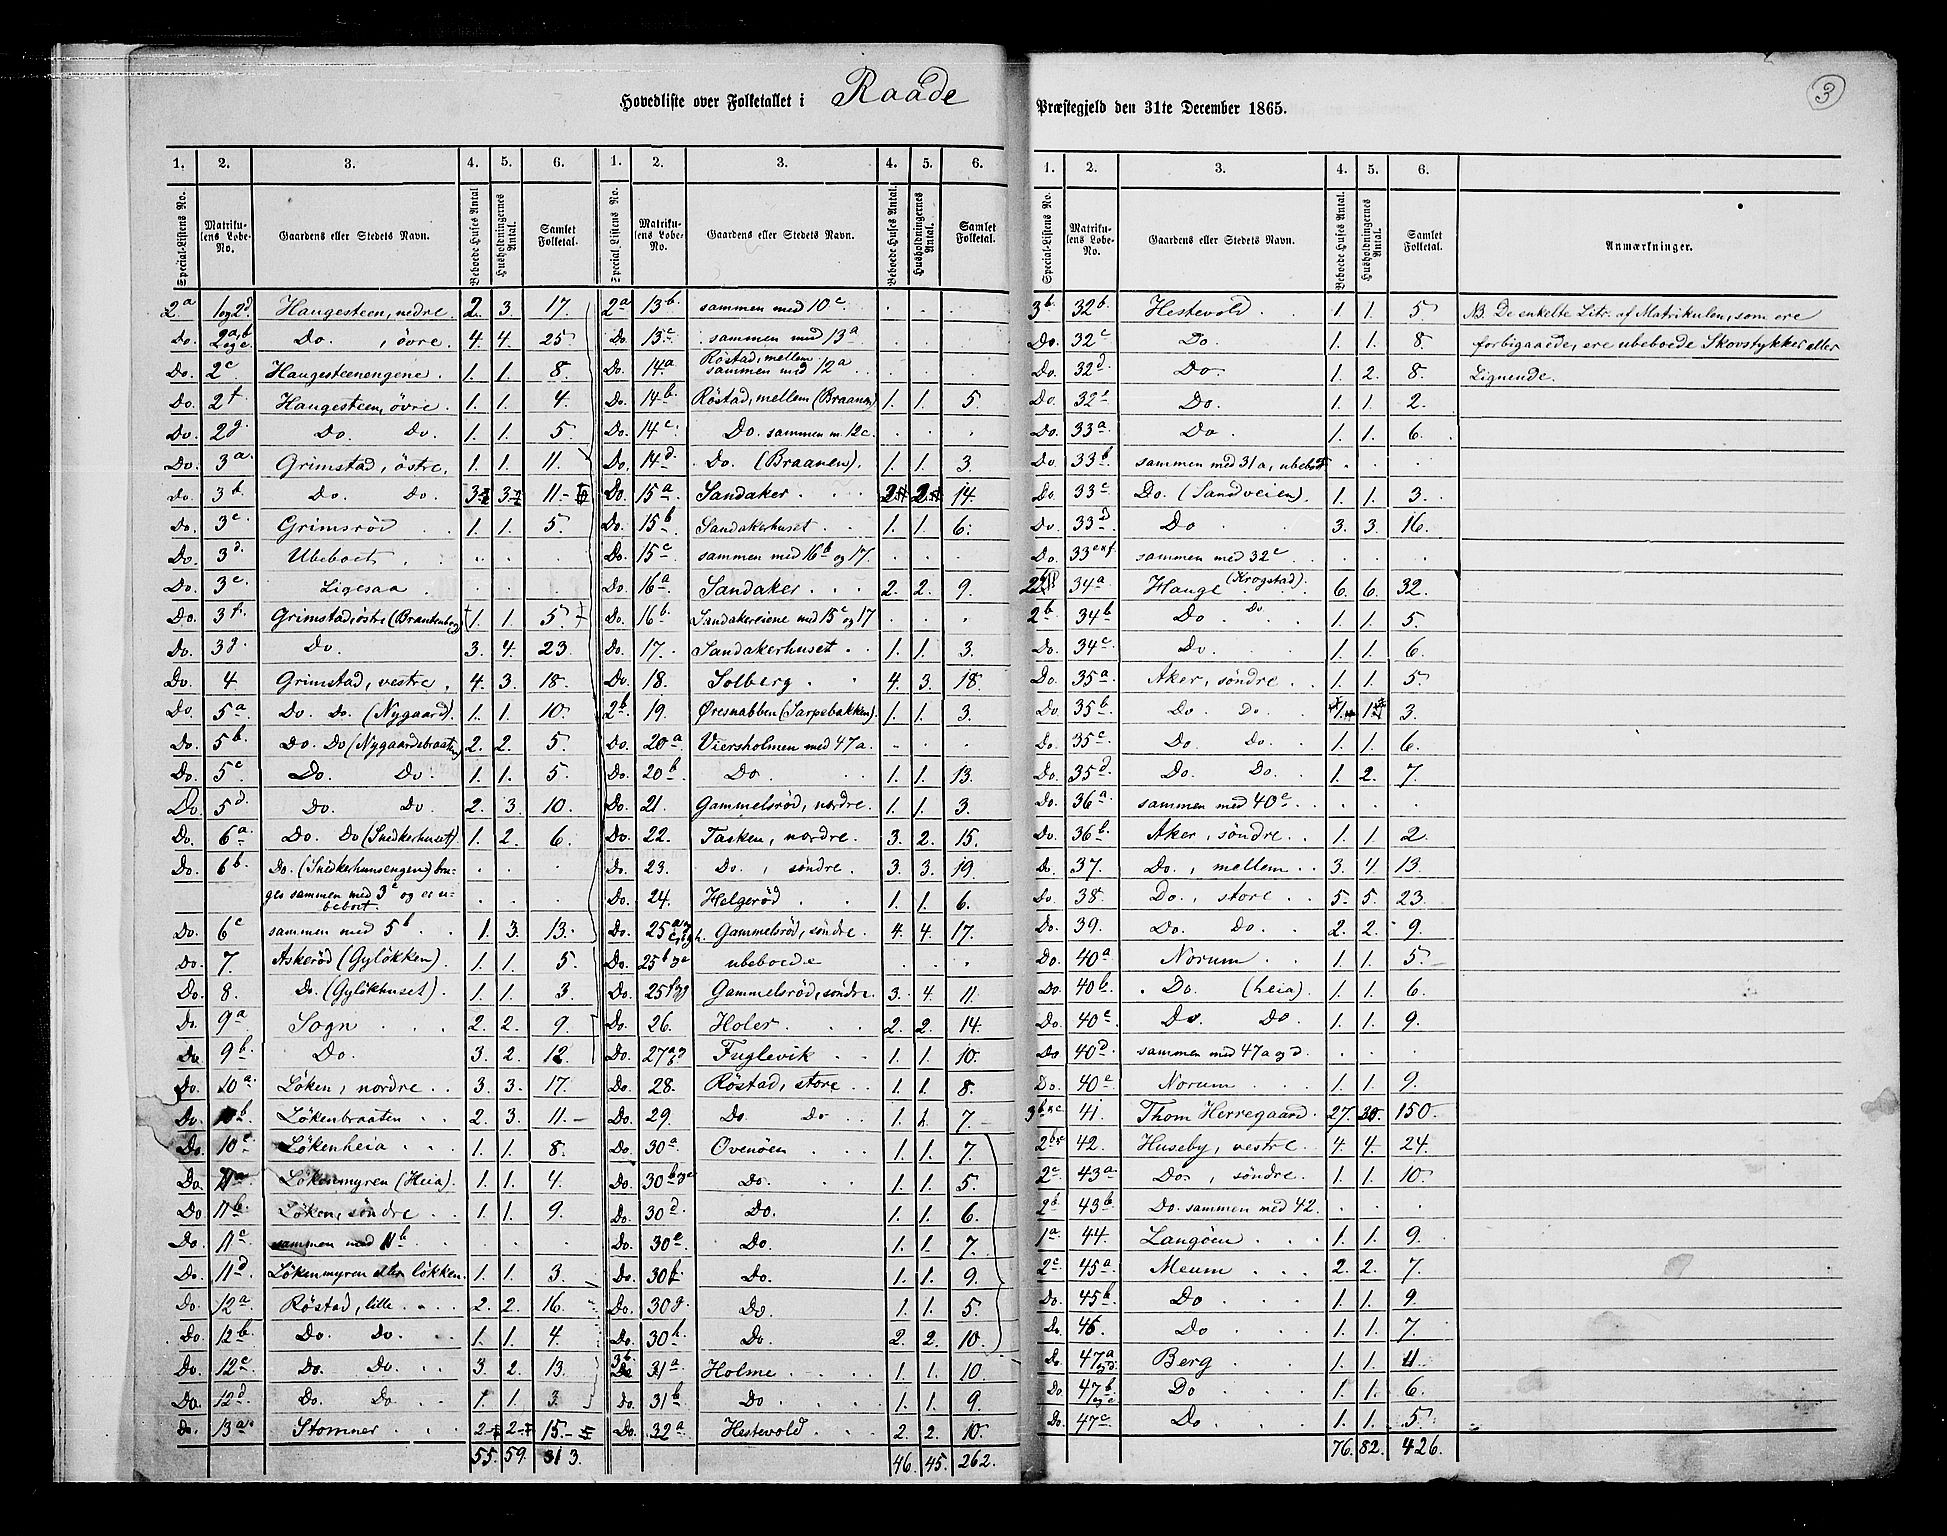 Hovedliste over Folketallet i Raade Præstegjeld den 31te December 1865. 3
1. 2. 3. 4. 5. 6.
Special-Listens No. Matrikulens Løbe-No. Gaardens eller Stedets Navn. Beboede Huses Antal Husholdningernes Antal. Samlet Folketal.
2a 1 og 2d Haugesteen, nedre 2. 3. 17.
Do. 2a,b Do. , övre. 4. 4. 25.
Do. 2c Haugesteenengene. 1. 1. 8.
Do. 2f. Haugesteen, övre. 1. 1. 4.
Do. 2g. Do. Do. 1. 1. 5.
Do. 3a. Grimstad, östre. 1. 1. 11.
Do. 3b. Do. Do. 3 3 11
Do. 3c. Grimsröd 1. 1. 5.
Do. 3d. Ubeboet . . .
Do. 3e. Ligesaa . . .
Do. 3f. Grimstad, östre (Brantenberg) 1. 1. 5.
Do. 3g. Do. 3. 4. 23.
Do. 4. Grimstad, vestre. 4. 3. 18.
Do. 5a. Do. Do. (Nygaard). 1. 1. 10.
Do. 5b. Do. Do (Nygaardsbraaten) 2. 2. 5.
Do. 5c Do. Do. 1. 1. 5.
Do. 5d. Do. Do. 2. 3. 10.
Do. 6a Do. Do (Snedkerhuset) 1. 2. 6.
Do. 6b. Do. (Snedkerhusengen) bru- . . .
ges sammen med 3e og er u- . . .
beboet.
Do. 6c sammen med 5b. 1. 3. 13.
Do. 7. Askeröd (Gylökken). 1. 1. 5.
Do. 8. Do. (Gylökhuset). 1. 1. 3.
Do. 9a Sogn 2. 2. 9.
Do 9b. Do. 3. 2. 12.
Do. 10a. Löken, nordre 3. 3. 17.
Do. 10b. Lökenbraaten 2. 3. 11.
Do. 10c. Lökenheia 1. 1. 8.
Do. 11a. Lökenmyren (Heia). 1. 1. 4.
Do. 11b. Löken, söndre 1. 1. 9.
Do. 11c sammen med 11b . . .
Do. 11d. Lökenmyren eller lökken. 1. 1. 3.
Do. 12a. Röstad, lille 2. 2. 16.
Do. 12b. Do. Do. 1. 1. 4.
Do. 12c Do. Do. 3. 2. 13.
Do. 12d. Do. Do. 1. 1. 3.
Do. 13a. Stomner 2 2 15
55. 59. 313.
1. 2. 3. 4. 5. 6.
Special-Listens No. Matrikulens Løbe-No. Gaardens eller Stedets Navn. Beboede Huses Antal. Husholdningernes Antal. Samlet Folketal.
2a 13b. sammen med 10c . . .
Do. 13c. sammen med 13a . . .
Do. 14a Röstad, mellem
sammen med 12a . . .
Do. 14b. Röstad, mellem (Braanen) 1. 1. 5.
Do. 14c. Do. sammen m. 12c. . . .
Do. 14d. Do. (Braanen). 1. 1. 3.
Do. 15a Sandaker 2 2 14.
Do. 15b Sandakerhuset 1. 1. 6.
Do. 15c sammen med 16b og 17. . . .
Do. 16a Sandaker 2. 2. 9.
Do. 16b. Sandakereiene med 15c og 17 . . .
Do. 17. Sandakerhuset 1. 1. 3.
Do. 18. Solberg 4. 3. 18.
2b. 19. Øresnabben (Sarpebakken). 1. 1. 3.
Do. 20a Viersholmen med 47a. . . .
Do. 20b Do. 1. 1. 13.
Do. 21. Gammelsröd, nordre. 1. 1. 3.
Do. 22. Tasken, nordre. 3. 2. 15.
Do. 23. Do. , söndre. 3. 3. 19.
Do. 24. Helgeröd 1. 1. 6.
Do. 25a Gammelsröd, söndre. 4. 4. 17.
Do. 25b ubeboede . . .
Do. 25 Gammelsröd, söndre. 3. 4. 11.
Do. 26. Holer 2. 2. 14.
Do. 27 Fuglevik 1. 1. 10.
Do. 28. Röstad, store 1. 1. 8.
Do. 29. Do. Do. 1. 1. 7.
Do. 30a Ovenöen 1. 1. 7.
Do. 30b Do. 1. 1. 5.
Do. 30d Do. 1. 1. 6.
Do. 30e Do. 1. 1. 7.
Do. 30f. Do. 1. 1. 9.
Do. 30g. Do. 1. 1. 5.
Do. 30h. Do. 2. 2. 10.
3b. 31a Holme 1. 1. 10.
Do. 31b Do. 1. 1. 9.
Do. 32a Hestevold 2. 2. 10.
46. 45. 262.
1. 2. 3. 4. 5. 6.
Special-Listens No. Matrikulens Løbe-No. Gaardens eller Stedets Navn. Beboede Huses Antal. Husholdningernes Antal. Samlet Folketal. Anmærkninger.
3b. 32b. Hestevold. 1. 1. 5 NB. De enkelte Litr. af Matrikulen, som ere
Do. 32c Do. 1. 1. 8 forbigaaede, ere ubeboede Skovstykker eller
Do. 32d. Do. 1. 2. 8. Lignende.
Do. 32e Do. 1. 1. 2.
Do. 33a. Do. 1. 1. 6.
Do. 33b. sammen med 31a, ubeboet . . .
Do. 33c Do. (Sandveien). 1. 1. 3.
Do. 33d Do. 3. 3. 16.
Do. 33e og f. sammen med 32c . . .
34a Hauge (Krogstad). 6. 6. 32.
2b. 34b Do. Do. 1. 1. 5.
Do. 34c. Do. 1. 1. 6.
Do. 35a. Aker, söndre 1. 1. 5.
Do. 35b. Do. Do. 1 1 3.
Do. 35c Do. Do. 1. 1. 6.
Do. 35d. Do. Do. 1. 2. 7.
Do. 36a. sammen med 40c. . . .
Do. 36b. Aker, söndre. 1. 1. 2.
Do. 37. Do. , mellem 3. 4. 13.
Do. 38. Do. , store 5. 5. 23.
Do. 39. Do. Do. 2. 2. 9.
Do. 40a Norum 1. 1. 5.
Do. 40b. Do. (heia). 1. 1. 6.
Do. 40c Do. Do. 1. 1. 9.
Do 40d sammen med 47a og d. . . .
Do. 40e Norum 1. 1. 9.
41. Thom Herregaard. 27. 30. 150.
42. Huseby, vestre. 4. 4. 24.
2c 43a. Do. , söndre. 1. 1. 10.
2b. 43b. Do. sammen med 42. . . .
1a 44. Langöen 1. 1. 9.
2c. 45a. Meum 2. 2. 7.
Do. 45b. Do. 1. 1. 9.
Do. 46. Do 1. 1. 7.
Do. 47a Berg 1. 1. 11.
Do. 47b Do 1. 1. 6.
Do. 47c. Do. 1. 1. 5.
76. 82. 426.